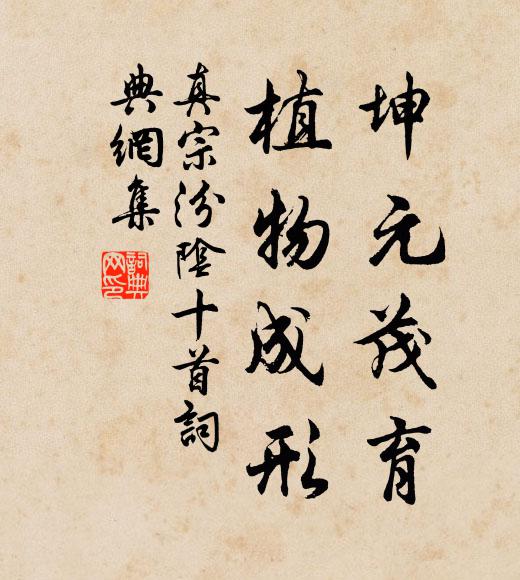 坤元茂育
植物成形
真宗汾陰十首詞
典網集
詞典
网印